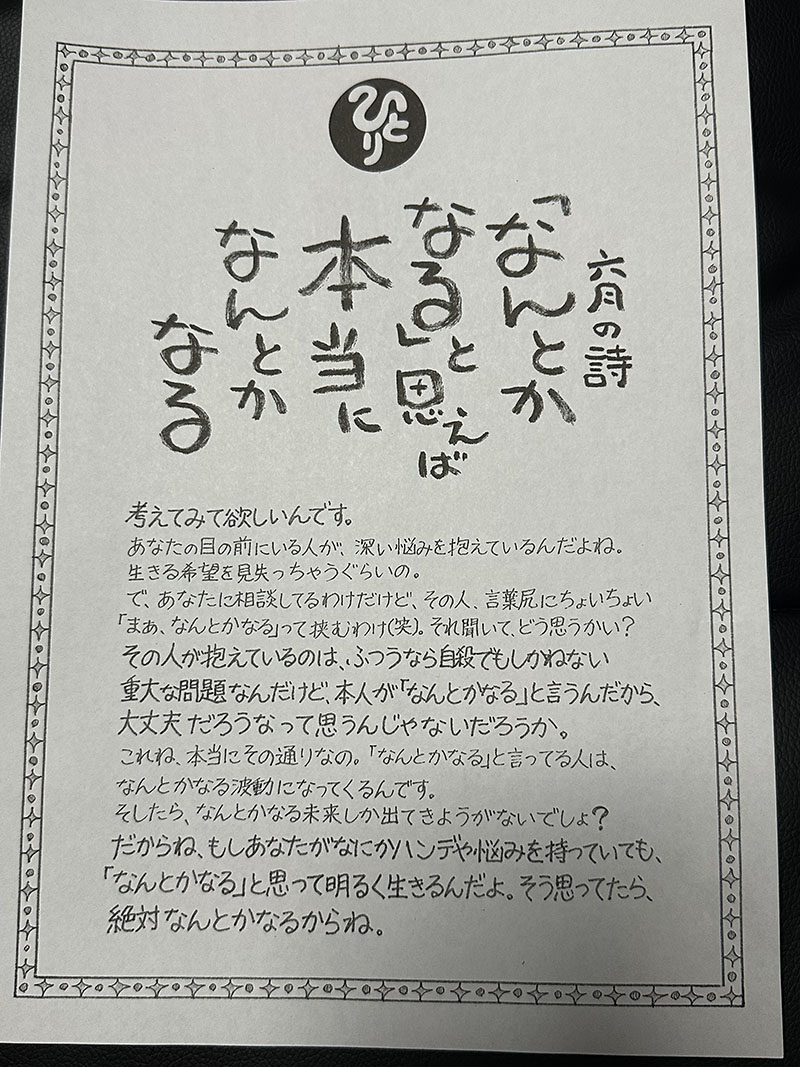 ひとり
六月の詩
「なんとか
なる」と
思えば
本当に
なんとか
なる
考えてみて欲しいんです。
あなたの目の前にいる人が、深い悩みを抱えているんだよね。
生きる希望を見失っちゃうぐらいの。
で、あなたに相談してるわけだけど、その人、言葉尻にちょいちょい
「まぁ、なんとかなる」って挟むわけ(笑)。それ聞いて、どう思うかい?
その人が抱えているのは、ふつうなら自殺でもしかねない
重大な問題なんだけど、本人が「なんとかなる」と言うんだから、
大丈夫だろうなって思うんじゃないだろうか。
これね、本当にその通りなの。「なんとかなる」と言ってる人は、
なんとかなる波動になってくるんです。
そしたら、なんとかなる未来しか出てきようがないでしょ?
だからね、もしあなたがなにかハンデや悩みを持っていても、
「なんとかなる」と思って明るく生きるんだよ。そう思ってたら、
絶対なんとかなるからね。